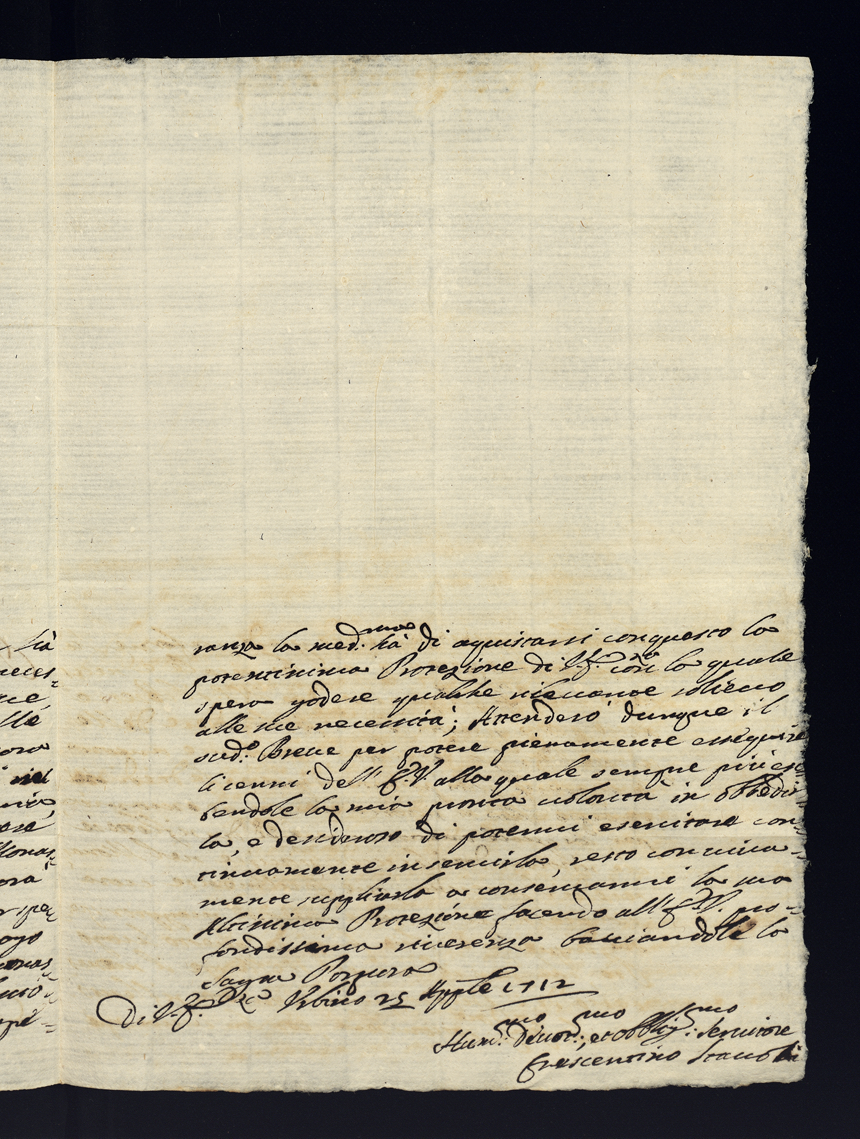 ranza la med.ma hà di aquistarsi con questo la
potentissima Protezione di V. E. con la quale
spera godere qualche rilevante sollievo
alle sue necessità; Attenderò dunque il
sud.o Breve per potere pienamente esseguire
li cenni dell' E. V. alla quale sempre più esi-
bendole la mia pronta volontà in obbedir-
la, e desideroso di potermi esercitare con-
tinuamente in servirla, resto con viva-
mente supplicarla a conservarmi la sua
Altissima Protezione facendo all' E. V. pro-
fondissima riverenza baciandole la
Sagra Porpora
Di V. E. Urbino 25 Apple 1712
Hum.mo Devot.mo, et obblig.mo Servitore
Crescentino Staccoli